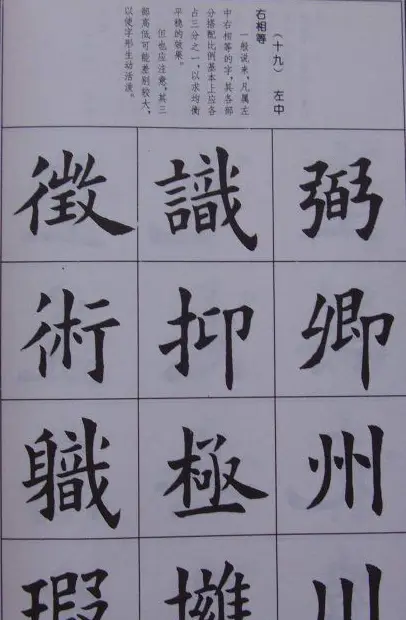 （十九） 左中
右相等
一般说来，凡属左
中右相等的字，其各部
分搭配比例基本上应各
占三分之一，以求均衡
平稳的效果。
但也应注意，其三
部高低可能差别较大，
以使字形生动活泼。
弼卿州川
識抑極
徵術軄瑕